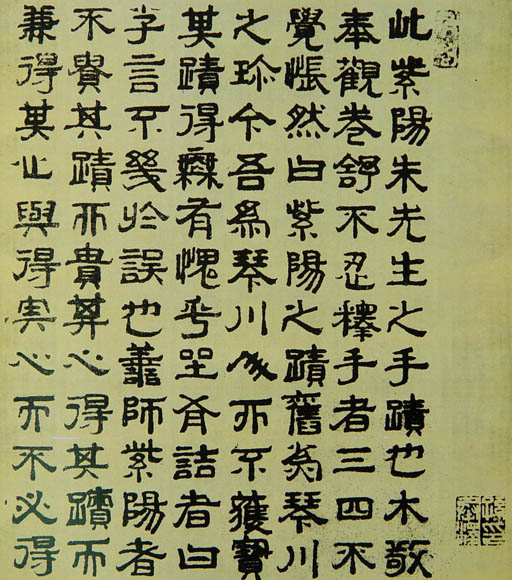 此紫陽朱先生之手蹟也木敬
奉觀卷舒不忍釋手者三四不
覺悵然曰紫陽之蹟舊為琴川
之珍今吾為琴川而不獲寶
其蹟得無有愧乎坐有詰者曰
子言不幾於誤也善師紫陽者
不貴其蹟而貴其心得其蹟而
兼得其心與得其心而不必得